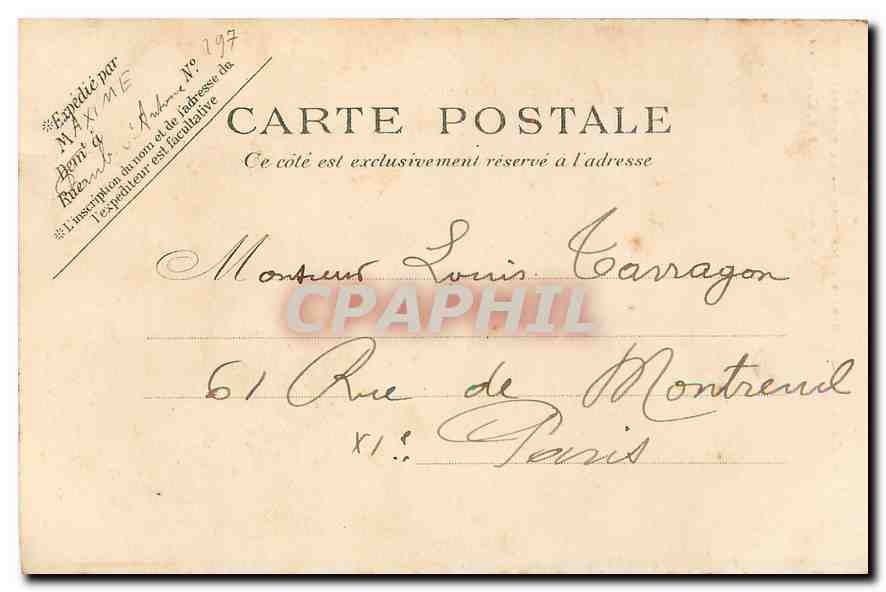 ※Expédié par
MAXIME
Demt à
Rue d'Antoine N° 197
※L'inscription du nom et de l'adresse de
l'expéditeur est facultative
CARTE POSTALE
Ce côté est exclusivement réservé à l'adresse
Monsieur Louis Tarragon
CPAPHIL
61 Rue de Montreuil
XIe. Paris